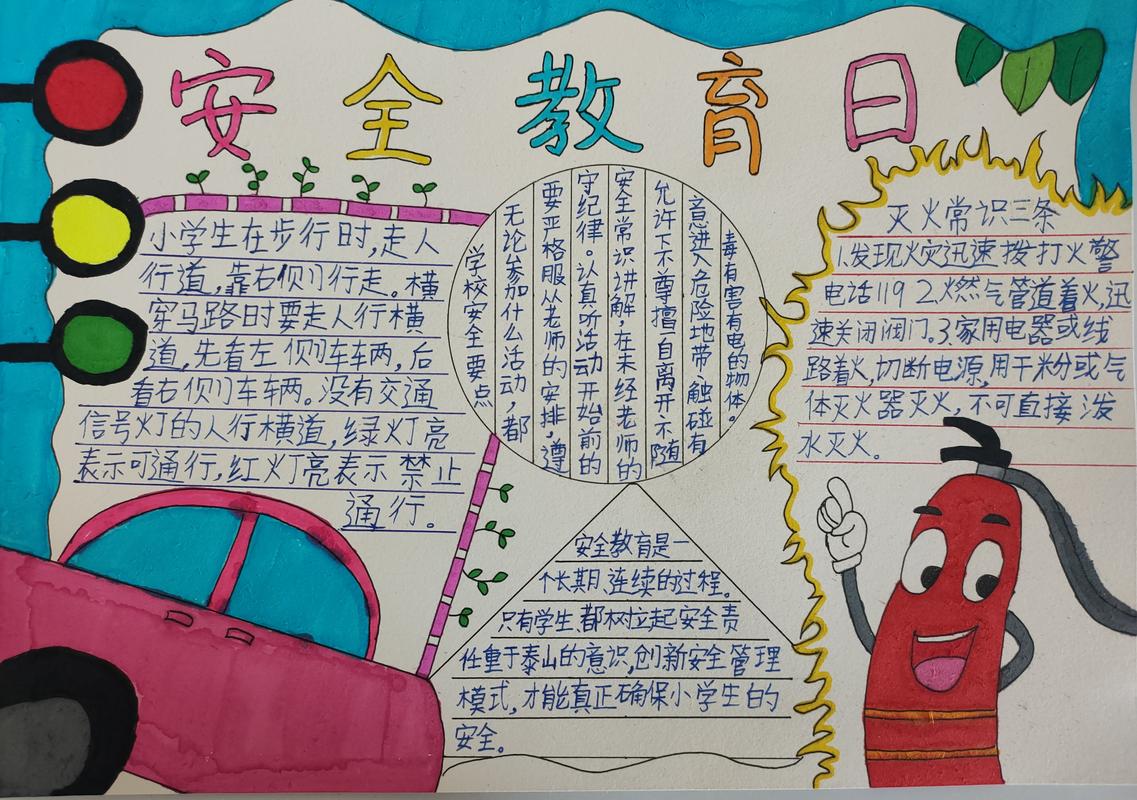 安全教育日
小学生在步行时,走人
行道,靠右侧行走。横
穿马路时要走人行横
道,先看左侧车车两,后
看右侧车车两。没有交通
信号灯的人行横道,绿灯亮
表示可通行,红灯亮表示禁止
通行。
学校安全要点
无论参加什么活动,都
要严格服从老师的安排,遵
守纪律。认真听活动开始前的
安全常识讲解,在未经老师的
允许下不尊擅自离开、不随
意进入危险地带,触碰有
毒有害有电的物体。
安全教育是一
个长期、连续的过程。
只有学生、都树立起安全责
任重于泰山的意识,创新安全管理
模式,才能真正确保小学生的
安全。
灭火常识三条
1.发现火灾迅速拨打火警
电话119 2.燃气管道着火,迅
速关闭阀门。3.家用电器或线
路着火,切断电源,用干粉或气
体灭火器灭火,不可直接泼
水灭火。